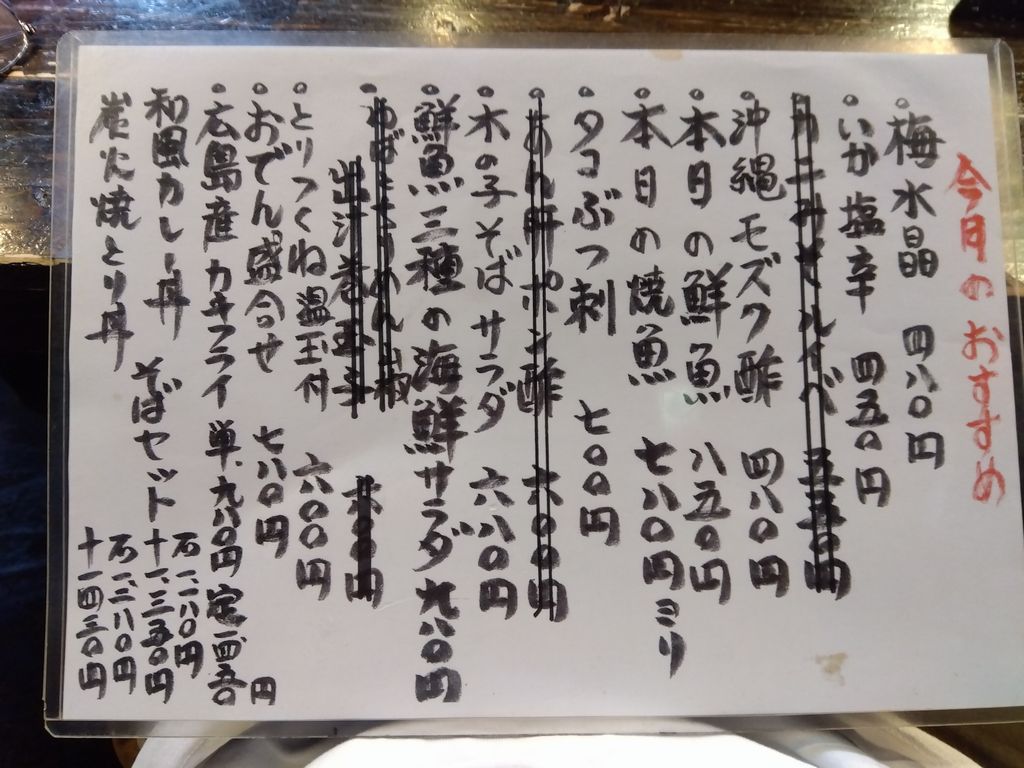 今月のおすすめ
・梅水晶 四八〇円
・いか塩辛 四五〇円
沖縄モズク酢 四八〇円
・本日の鮮魚 八五〇円
・本日の焼魚 七八〇円ヨリ
・タコぶつ刺 七〇〇円
・あん肝ポン酢 六〇〇円
・木の子そばサラダ 六八〇円
鮮魚三種の海鮮サラダ 九八〇円
出汁巻玉子 六〇〇円
・とりつくね温玉付 六〇〇円
・おでん盛合せ 七八〇円
・広島産カキフライ 単.九八〇円 定一四五〇円
和風カレー丼 そばセット
炭火焼とり丼